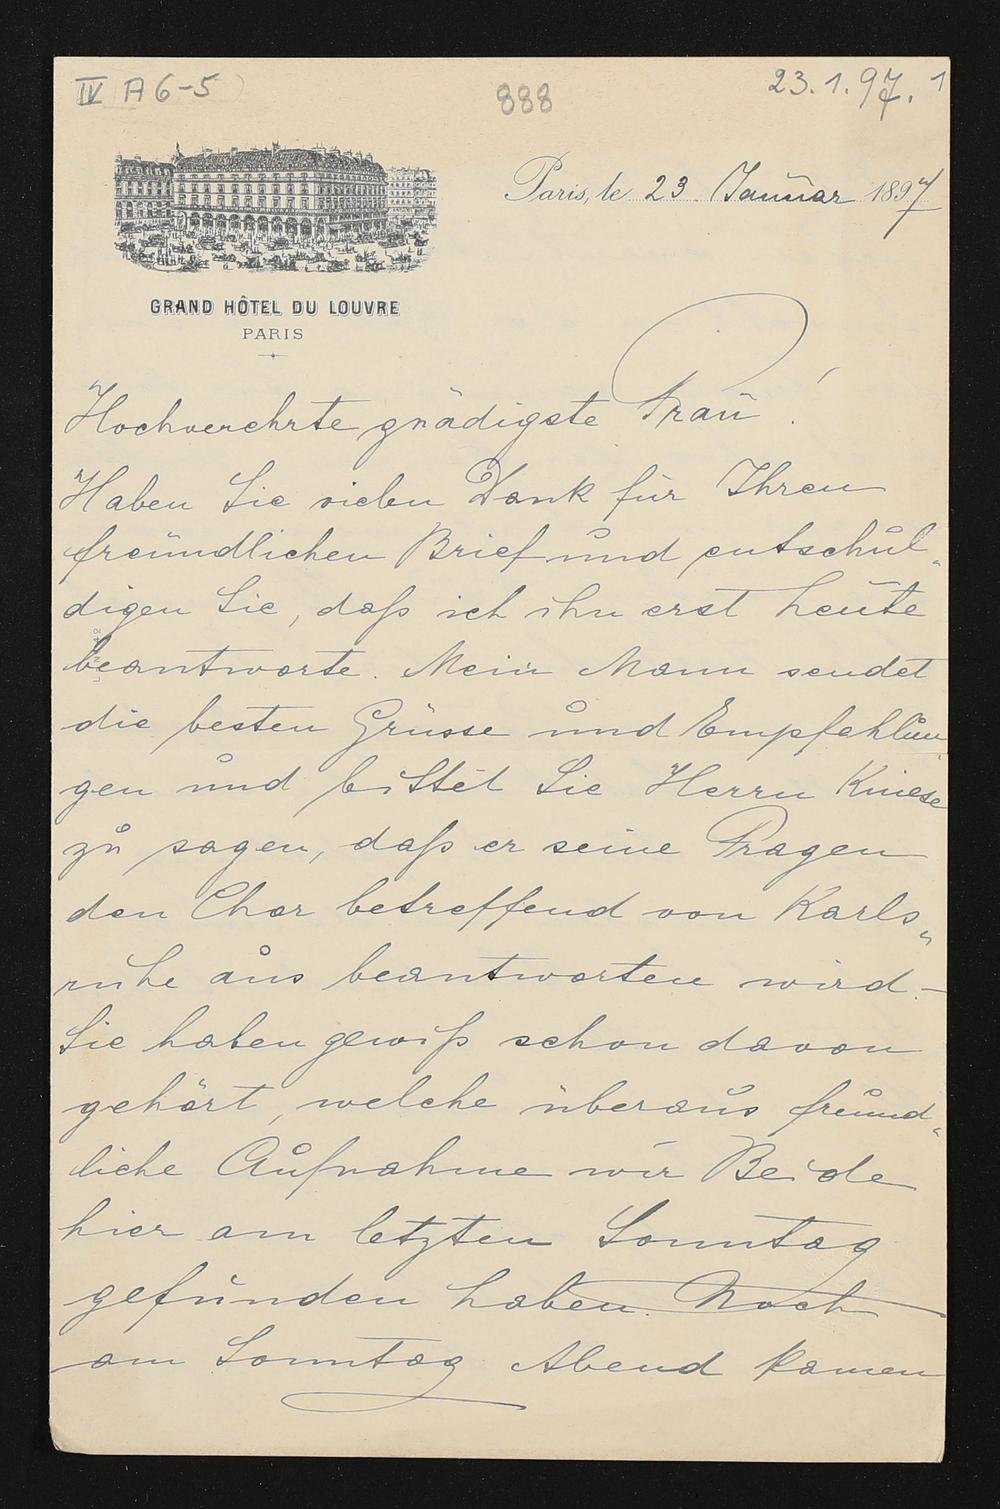 IV A 6-5
888
23.1.97. 1
Paris, le 23. Januar 1897
GRAND HÔTEL DU LOUVRE
PARIS
Hochverehrte gnädigste Frau!
Haben Sie vielen Dank für Ihren
freundlichen Brief und entschul„
digen Sie, daß ich ihn erst heute
beantworte. Mein Mann sendet
die besten Grüsse und Empfehlun
gen und bittet Sie Herrn Kniese
zu sagen, daß er seine Fragen
den Chor betreffend von Karls„
ruhe aus beantworten wird. –
Sie haben gewiß schon davon
gehört, welche überaus freund„
liche Aufnahme wir Beide
hier am letzten Sonntag
gefunden haben. Noch
am Sonntag Abend kamen